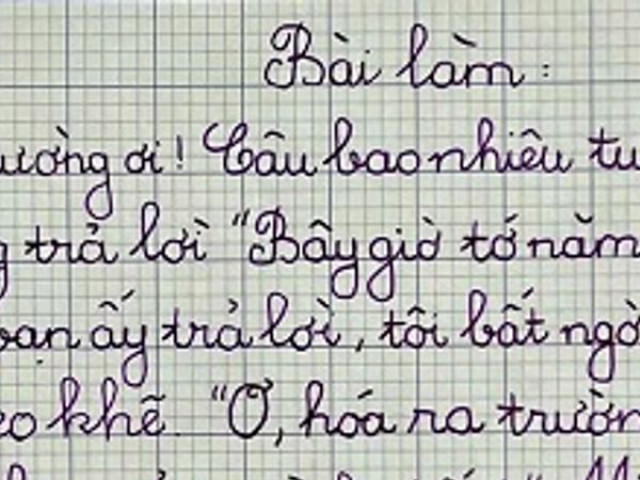 Bài làm :
ường ơi! Cậu bao nhiêu tu
g trả lời "Bây giờ tớ năm
bạn ấy trả lời, tôi bất ngờ
eo khẽ "Ơ, hóa ra trườn